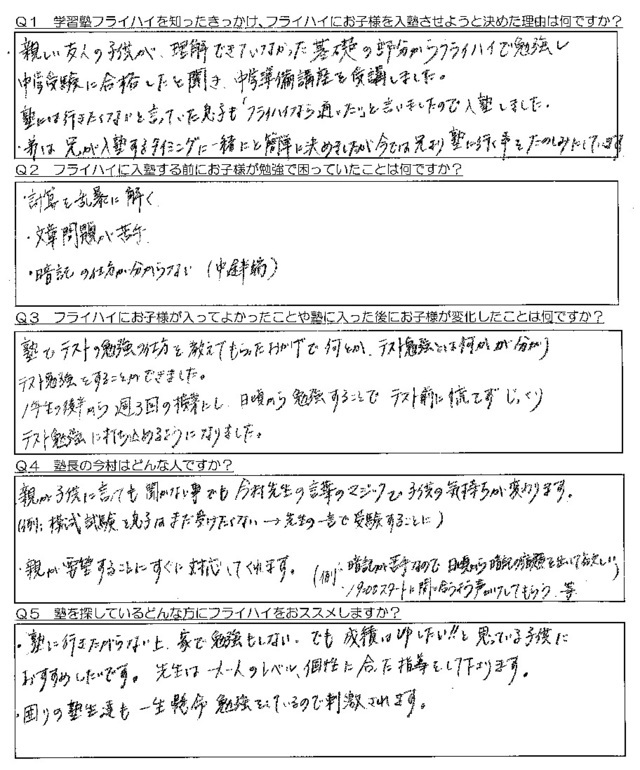 Q1 学習塾フライハイを知ったきっかけ、フライハイにお子様を入塾させようと決めた理由は何ですか?
親しい友人の子供が、理解できていなかった基礎の部分からフライハイで勉強し
中学受験に合格したと聞き、中学準備講座を受講しました。
塾には行きたくないと言っていた息子も「フライハイなら通いたい」と言いましたので入塾しました。
・弟は兄が入塾するタイミングに一緒にと簡単に決めましたが今では兄より塾に行く事をたのしみにしています
Q2 フライハイに入塾する前にお子様が勉強で困っていたことは何ですか?
・計算を乱暴に解く
・文章問題が苦手
・暗記の仕方が分からない(中
Q3 フライハイにお子様が入ってよかったことや塾に入った後にお子様が変化したことは何ですか?
塾でテストの勉強の仕方を教えてもらったおかげで何とか、テスト勉強とは何かが分かり
テスト勉強をすることができました。
1年生の後半から週3回の授業にし、日頃から勉強することでテスト前に慌てずじっくり
テスト勉強に打ち込めるようになりました。
Q4 塾長の今村はどんな人ですか?
親が子供に言っても聞かない事でも今村先生の言葉のマジックで子供の気持ちが変わります。
(例:模試試験を息子はまだ受けたくない→先生の一言で受験することに)
・親が要望することにすぐに対応してくれます。
(例・暗記が苦手なので日頃から暗記の宿題を出してほしい
・19:00スタートに間に合うよう声かけしてもらう 等
Q5 塾を探しているどんな方にフライハイをおススメしますか?
・塾に行きたがらない上、家で勉強もしない。でも成績はUPしたい!!と思っている子供に
おすすめしたいです。先生は一人一人のレベル、個性に合った指導をして下さります。
・周りの塾生達も一生懸命勉強をしているので刺激されます。